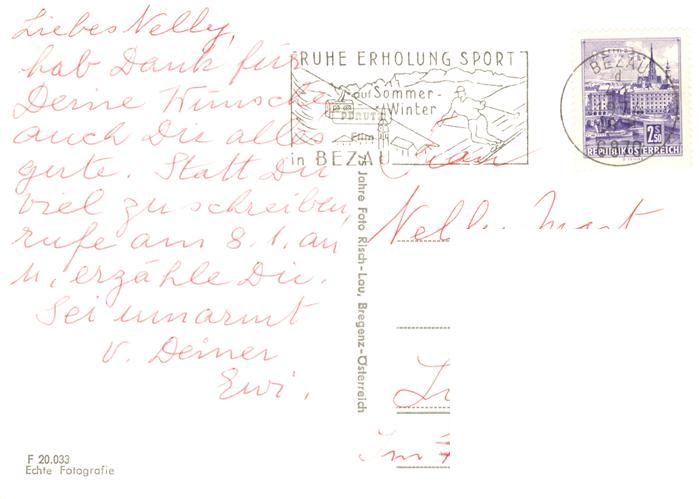 Liebes Nelly,
hab Dank für
Deine Wünsche
auch Dir alles
gute. Statt Dir
viel zu schreiben,
rufe am 8.1. an
u. erzähle Dir.
Sei umarmt
v. Deiner
Ewi.
F 20.033
Echte Fotografie
Jahre Foto Risch-Lau, Bregenz-Österreich
RUHE ERHOLUNG SPORT
auf Sommer-
Winter
PERUTZ
Film
in BEZAU
BEZAU
d
2.50
REPUBLIK ÖSTERREICH
Frau
Nelly